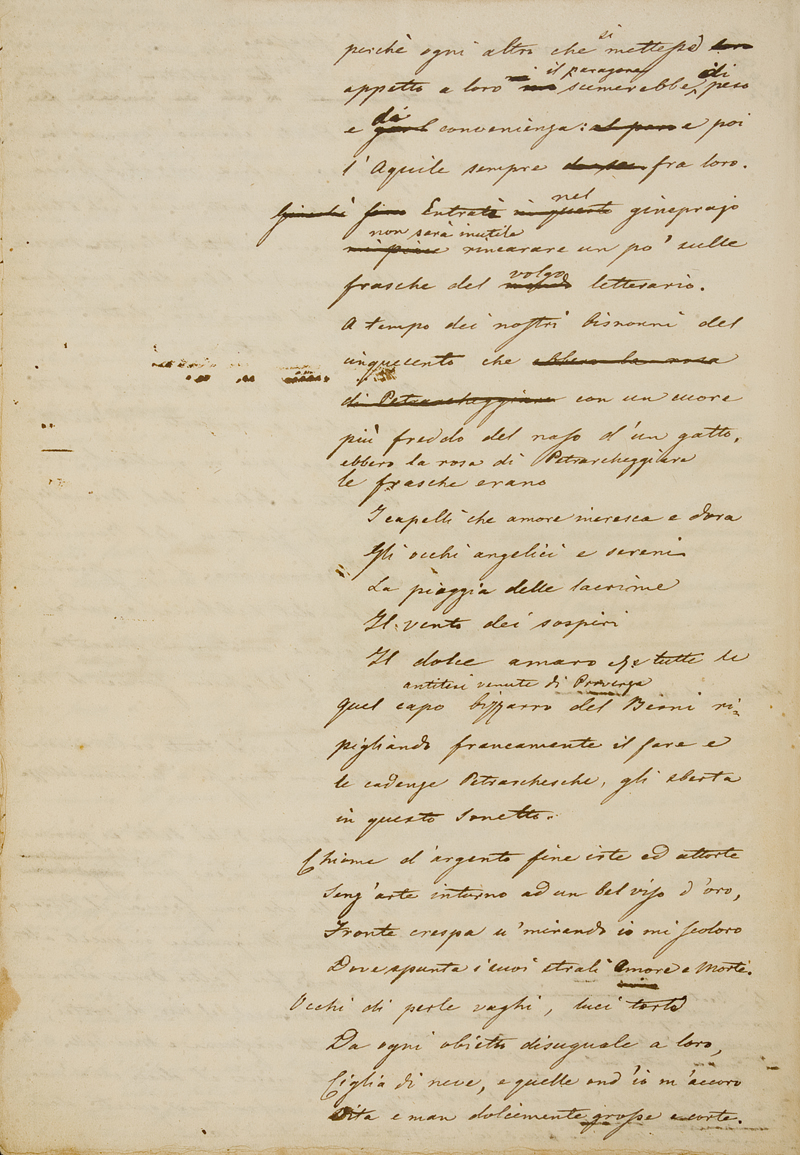 perchè ogni altro che si mettesse
appetto a loro il paragone scemerebbe di peso
e di convenienza: al pari e poi
l'Aquile sempre fra loro.
Giacchè sono Entrati in questo nel gineprajo
non sarà inutile rincarare un po' sulle
frasche del volgo mondo letterario.
A tempo dei nostri bisnonni del
cinquecento che ebbero la rosa
di Petrarcheggiare con un cuore
più freddo del naso d'un gatto,
ebbero la rosa di Petrarcheggiare
le frasche erano
I capelli che amore increspa e dora
Gli occhi angelici e sereni
La pioggia delle lacrime
Il vento dei sospiri
Il dolce amaro e tutte le
antitesi venute di Provenza
Quel capo bizzarro del Berni ri-
pigliando francamente il fare e
le cadenze Petrarchesche, gli sberta
in questo Sonetto.
Chiome d'argento fine irte ed attorte
Senz'arte intorno ad un bel viso d'oro,
Fronte crespa u' mirando io mi scoloro
Dove spunta i suoi strali Amore e Morte.
Occhi di perle vaghi, luci torte
Da ogni obietto disuguale a loro,
Ciglia di neve, e quelle ond'io m'accoro
Dita e man dolcemente grosse e corte.